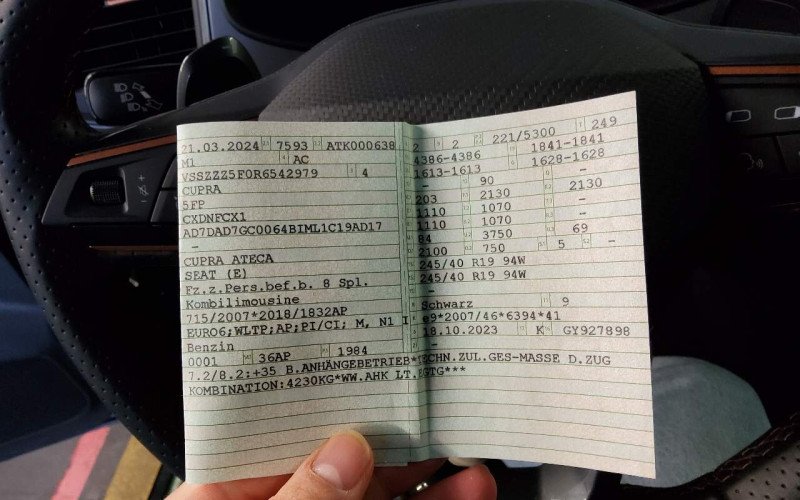 21.03.2024 7593 ATK000638 2 2 221/5300 249
M1 AC 4386-4386 1841-1841
VSSZZZ5F0R6542979 4 1613-1613 1628-1628
CUPRA – 90 –
5FP 203 2130 2130
CXDNFCX1 1110 1070
AD7DAD7GC0064BIML1C19AD17 1110 1070
– 84 3750 69
CUPRA ATECA 2100 750 5 –
SEAT (E) 245/40 R19 94W
Fz.z.Pers.bef.b. 8 Spl. 245/40 R19 94W
Kombilimousine –
715/2007*2018/1832AP Schwarz 9
EURO6;WLTP;AP;PI/CI; M, N1 I e9*2007/46*6394*41
Benzin 18.10.2023 K GY927898
0001 36AP 1984 –
7.2/8.2:+35 B.ANHÄNGEBETRIEB*TECHN.ZUL.GES-MASSE D.ZUG
KOMBINATION:4230KG*WW.AHK LT. EGTG***